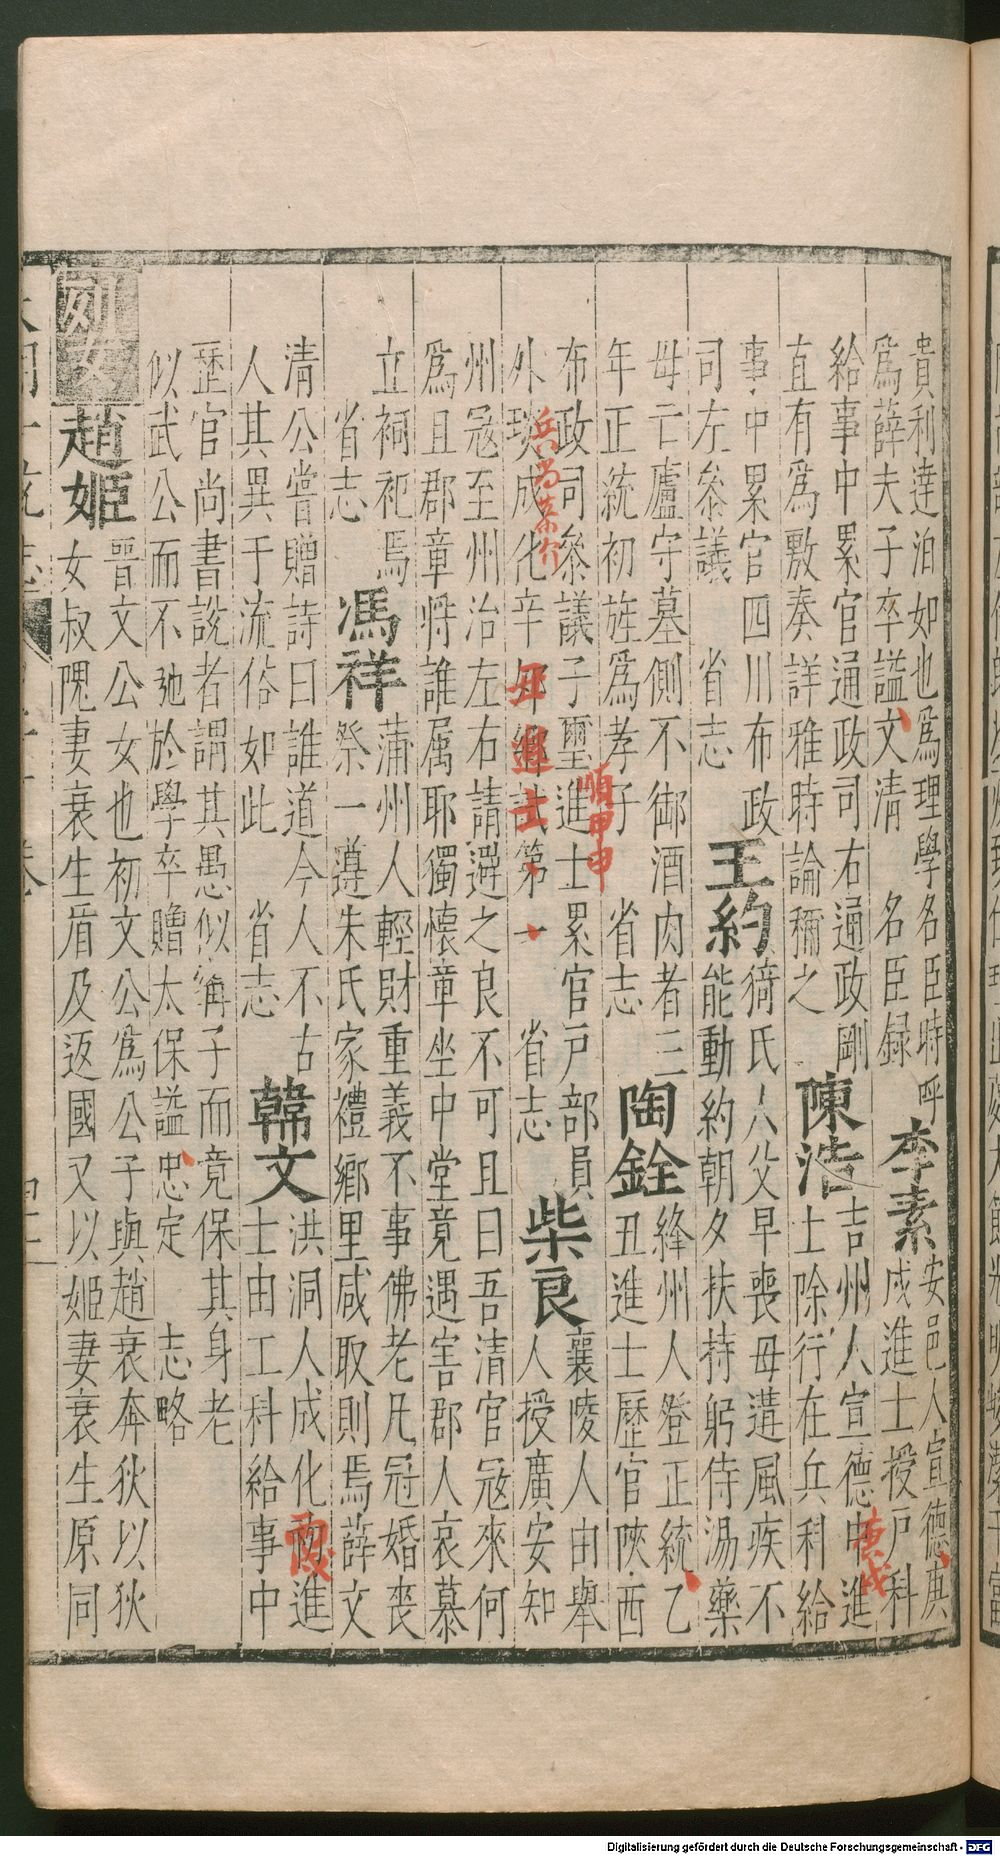 貴利達泊如也爲理學名臣時呼
爲薛夫子卒謚文清 名臣録
李素
安邑人宣德庚
戌進士授戸科
給事中累官通政司右通政剛
直有爲敷奏詳雅時論稱之
陳浩
吉州人宣德中進
士除行在兵科給
庚戌
事中累官四川布政
司左叅議 省志
王約
猗氏人父早喪母遘風疾不
能動約朝夕扶持躬侍湯藥
母亡廬守墓側不御酒肉者三
年正統初旌爲孝子 省志
陶銓
絳州人登正統乙
丑進士歷官陜西
布政司叅議子璽進士累官戸部員
外琰成化辛卯鄉試第一 省志
順甲申
兵尚
進士
柴良
襄陵人由舉
人授廣安知
州冦至州治左右請避之良不可且曰吾清官冦來何
爲且郡章將誰属耶獨懷章坐中堂竟遇害郡人哀慕
立祠祀焉
省志
馮祥
蒲州人輕財重義不事佛老凡冠婚喪
祭一遵朱氏家禮鄉里咸取則焉薛文
清公嘗贈詩曰誰道今人不古
人其異于流俗如此 省志
韓文
洪洞人成化 進
士由工科給事中
歷官尚書說者謂其愚似甯子而竟保其身老
似武公而不弛於學卒贈太保謚忠定 志略
列女
趙姬
晋文公女也初文公爲公子與趙衰奔狄以狄
女叔隗妻衰生盾及返國又以姬妻衰生原同
Digitalisierung gefördert durch die Deutsche Forschungsgemeinschaft - DFG